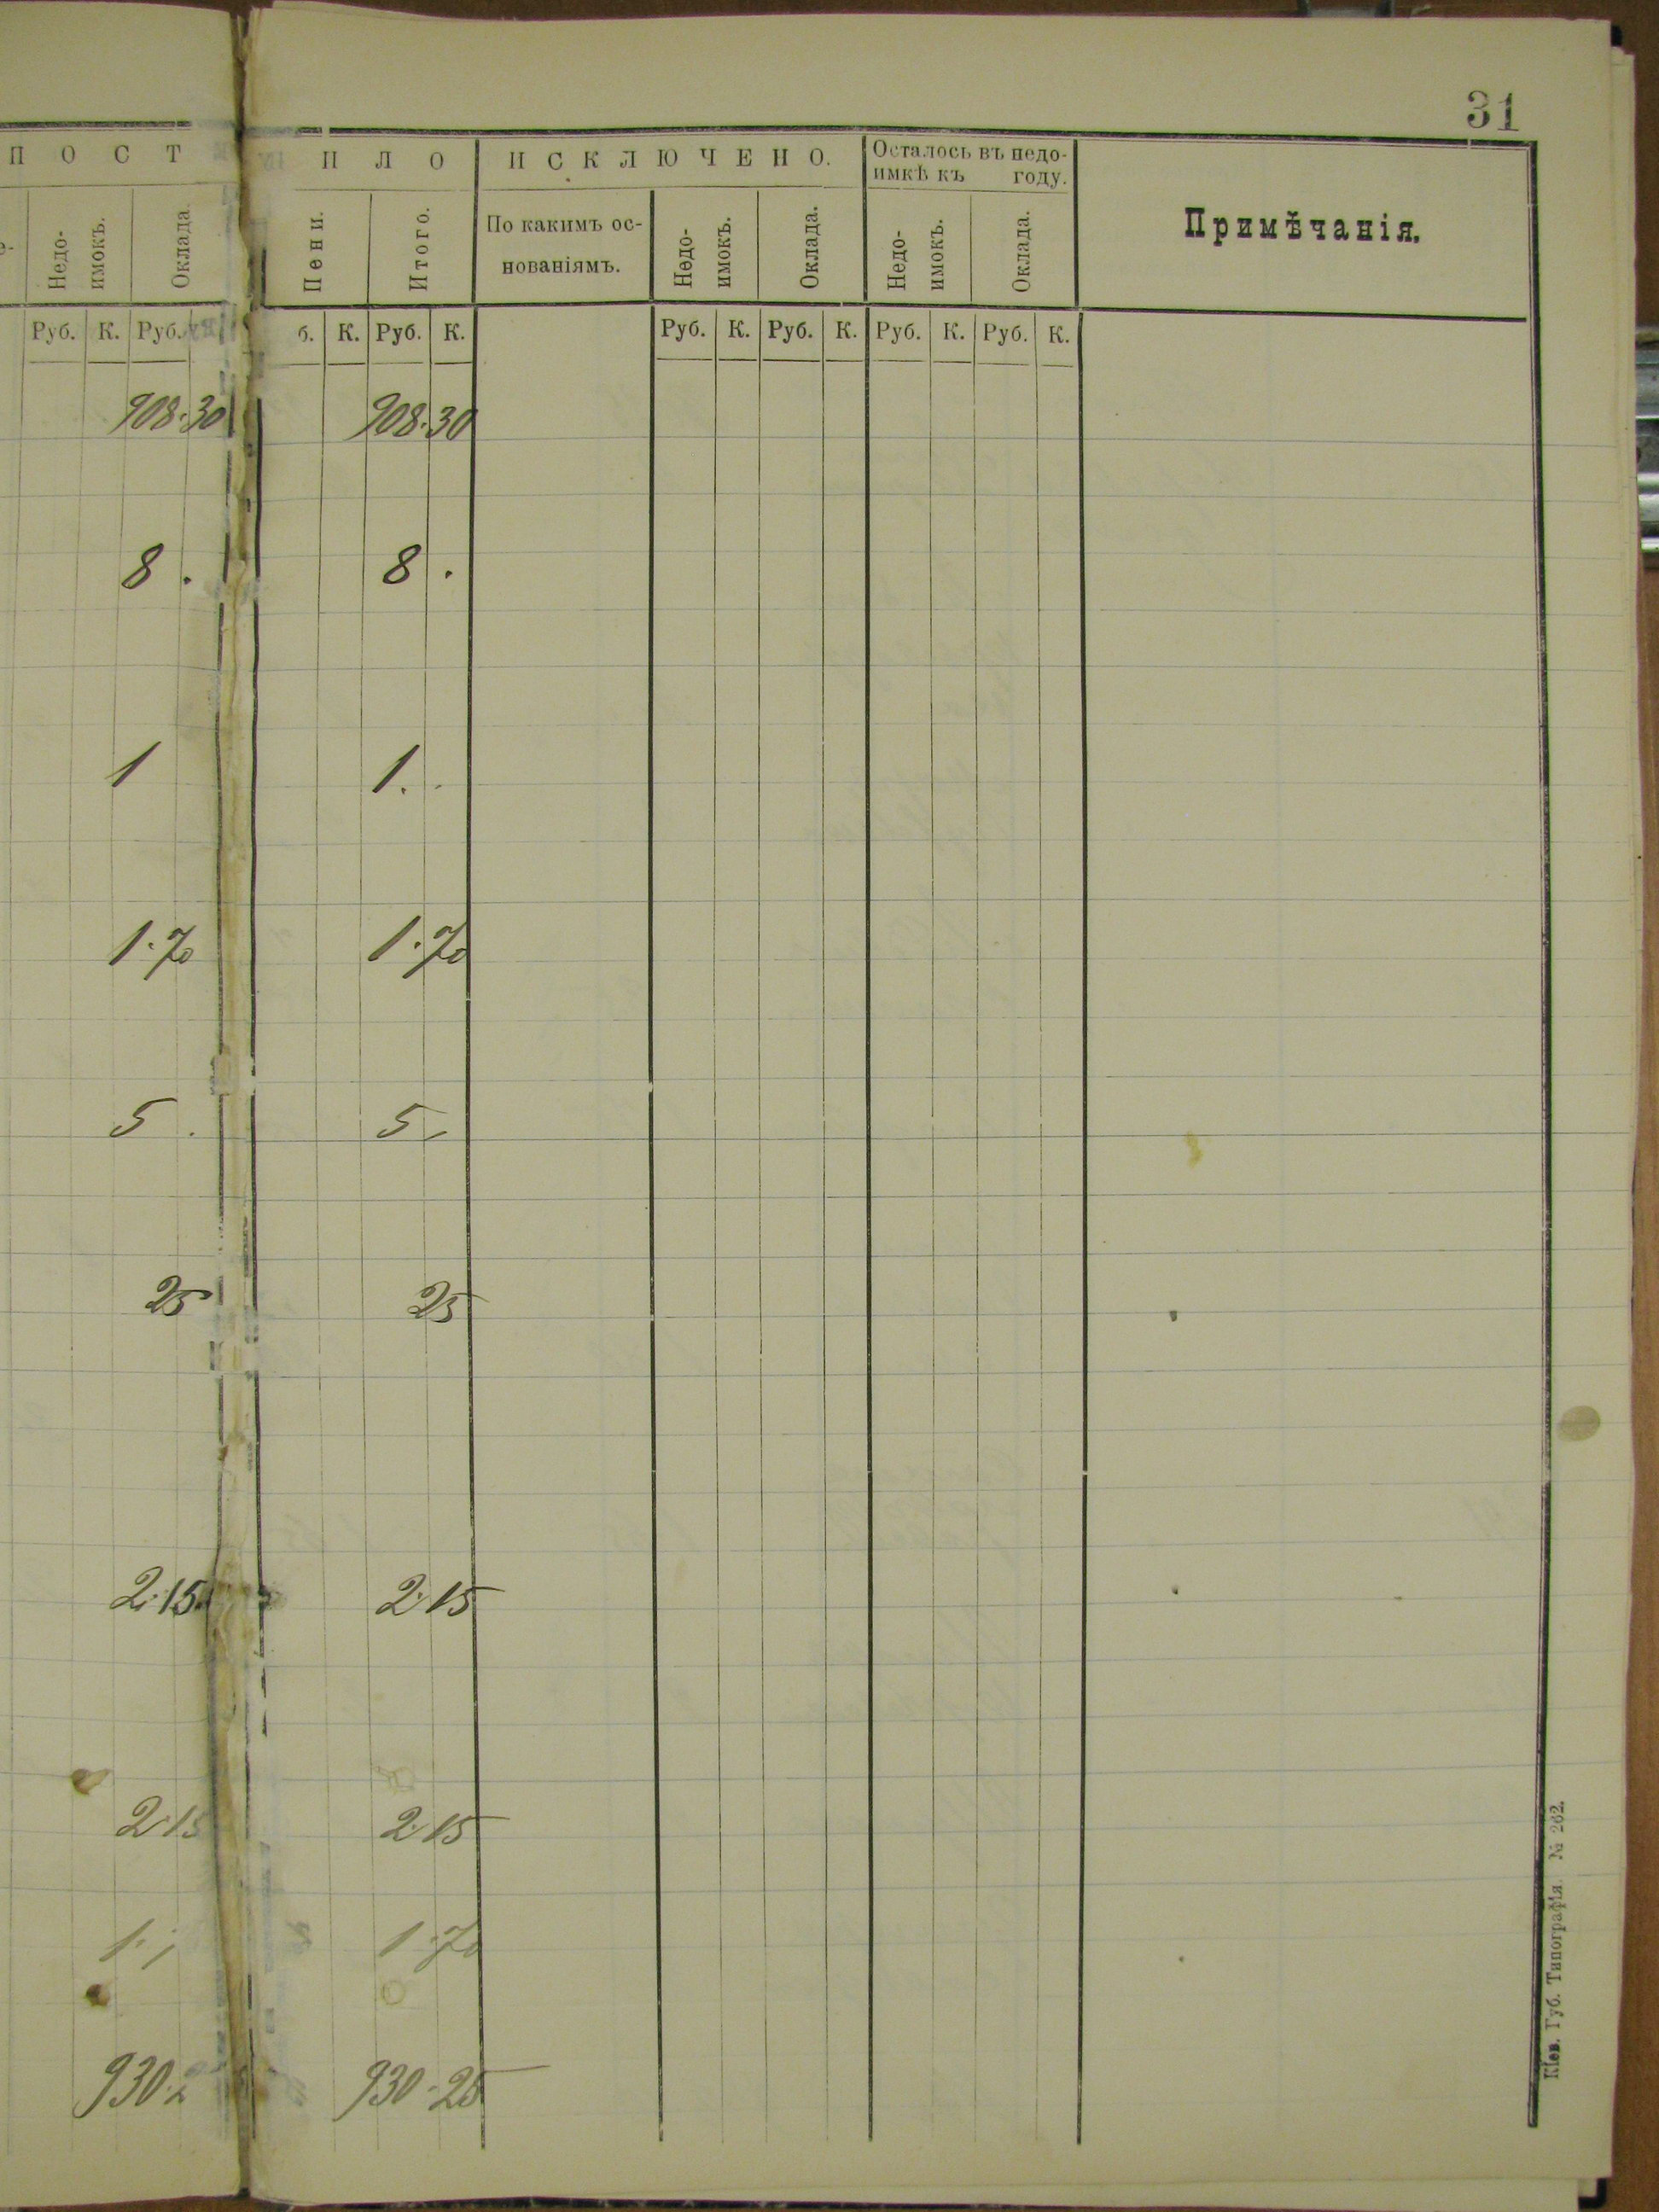 31
ПОСТ ПЛО ИСКЛЮЧЕНО. Осталось въ недо-
имкѣ къ году.
Примѣчанія.
Недо-
имокъ. Оклада. Пени. Итого. По какимъ ос-
нованіямъ. Недо-
имокъ. Оклада. Недо-
имокъ. Оклада.
Руб. К. Руб. б. К. Руб. К. Руб. К. Руб. К. Руб. К. Руб. К.
908.30 908.30
8. 8.
1 1.
1.70 1.70
5. 5.
25 25
2.15 2.15
2.15 2.15
1. 1.70
930. 930.25
Кіев. Губ. Типографія. № 262.